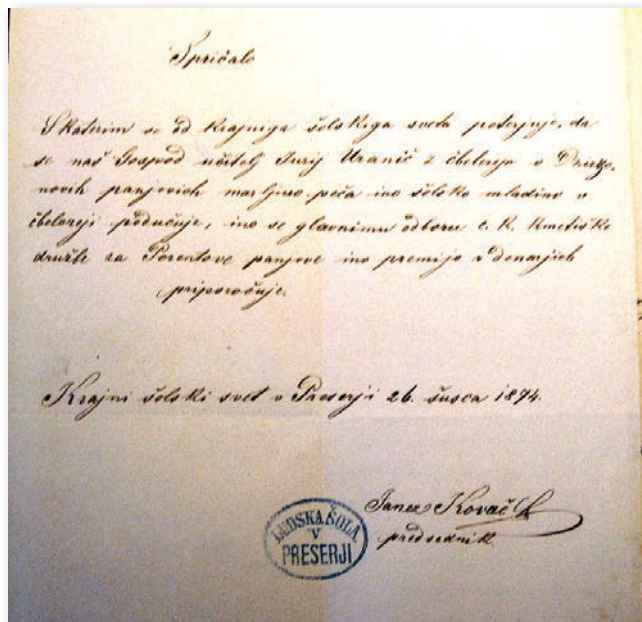 Spričalo
S katerim se od krajniga šolskiga sveta poterjuje, da
se naš Gospod učitelj Jurij Uranič z čbelorejo v Dzierzo-
novih panjovih marljivo peča ino šolsko mladino v
čbeloreji podučuje, ino se glavnimu odboru c. k. kmetiške
družbe za Porentove panjove ino premijo v denarjih
priporočuje.
Krajni šolski svet v Preserji 26. sušca 1874.
Janez Kovač
predsednik
LUDSKA ŠOLA
V
PRESERJI